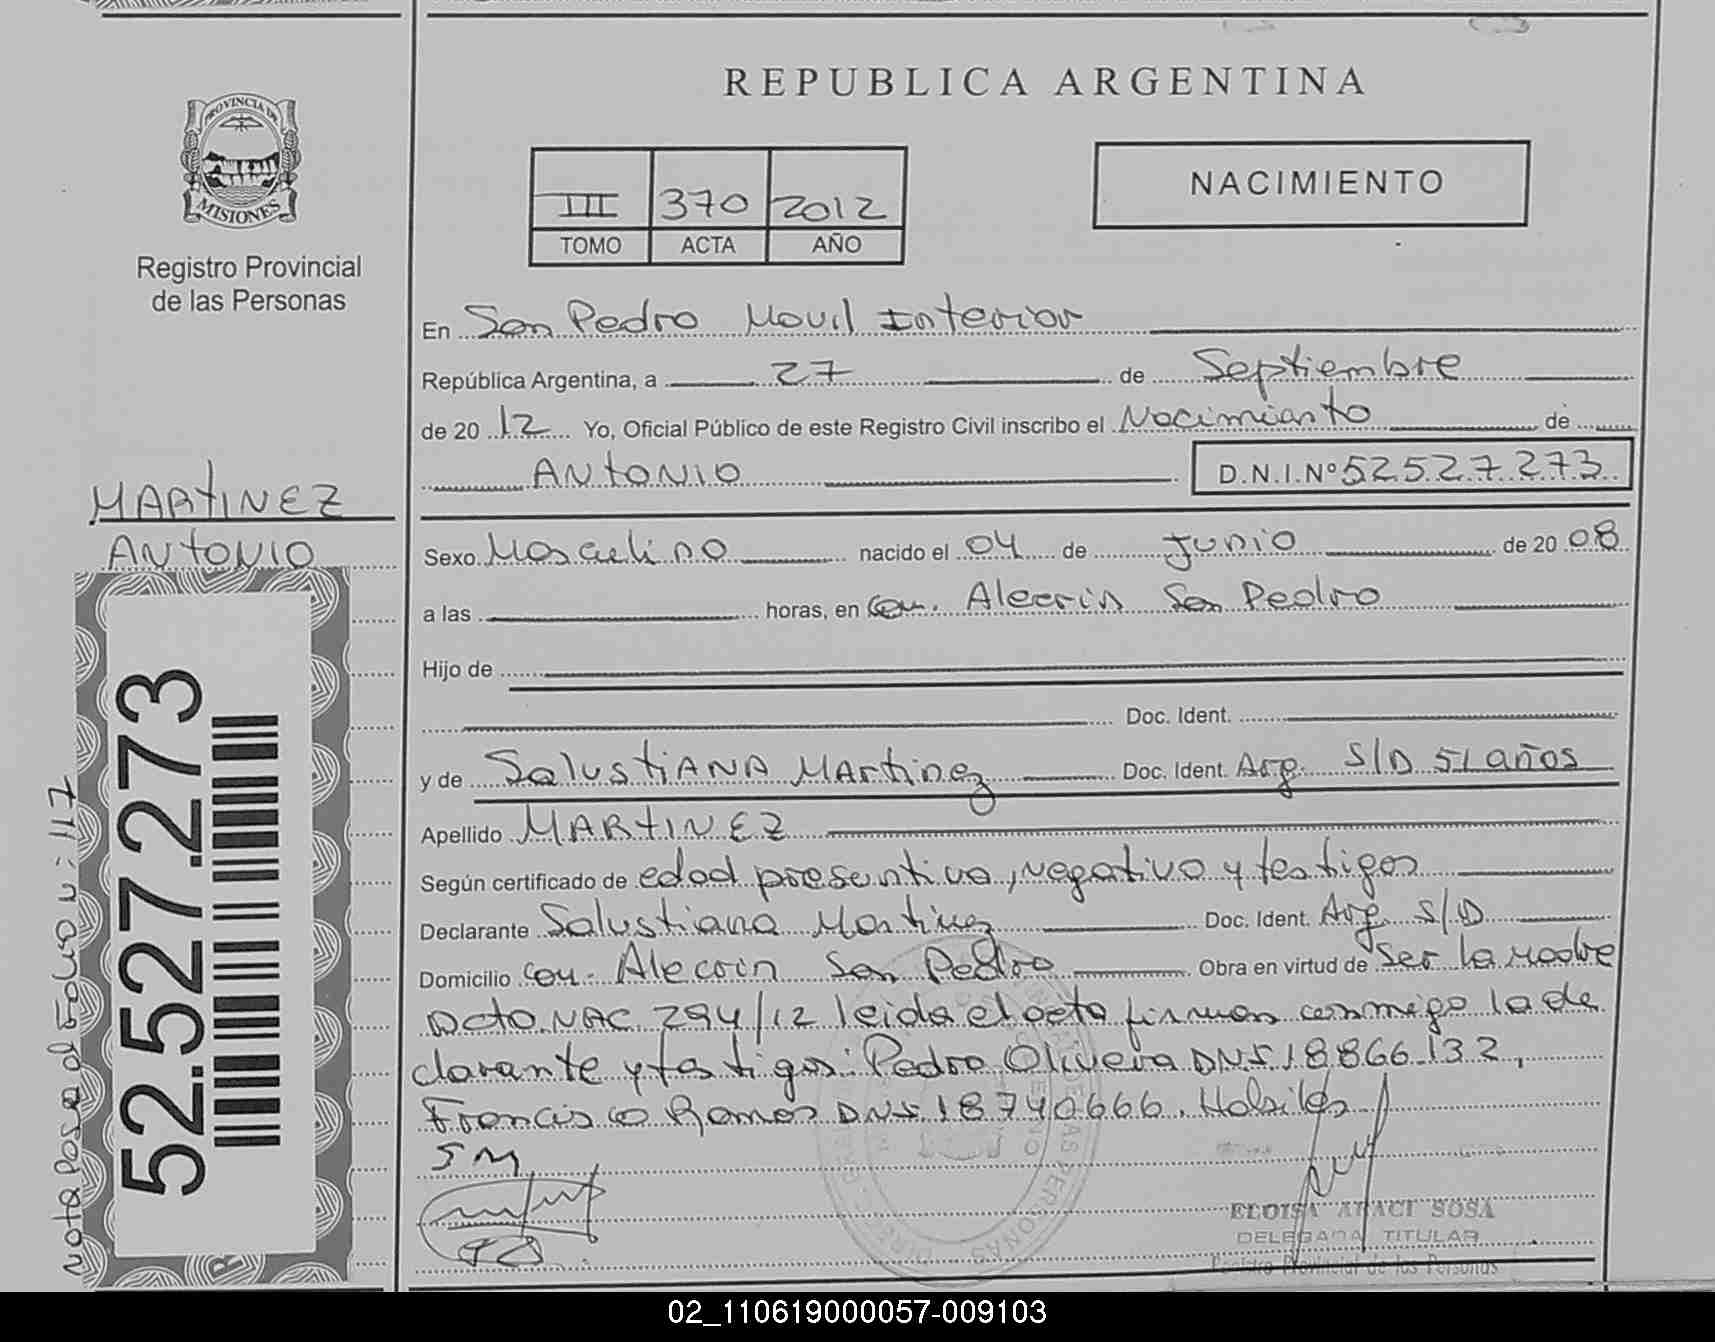 REPUBLICA ARGENTINA
PROVINCIA DE
MISIONES
Registro Provincial
de las Personas
III 370 2012
TOMO ACTA AÑO
NACIMIENTO
En San Pedro Movil Interior
República Argentina, a 27 de Septiembre
de 20 12 Yo, Oficial Público de este Registro Civil inscribo el Nacimianto de
ANTONIO D.N.I.Nº 52.527.273
MARTINEZ
ANTONIO
Sexo Masculino nacido el 04 de Junio de 20 08
a las horas, en Com. Alecrin San Pedro
Hijo de
Doc. Ident.
y de Salustiana Martinez Doc. Ident. Arg. S/D 51 años
Apellido MARTINEZ
Según certificado de edad presuntiva, negativo y testigos
Declarante Salustiana Martinez Doc. Ident. Arg. S/D
Domicilio Com. Alecrin San Pedro Obra en virtud de Ser la madre
Dcto. NAC. 294/12 leida el acta firman conmigo la de
clarante y testigos: Pedro Olivera DNI 18.866.132,
Francisco Ramos DNI 18740666. Habiles
SM
ELOISA ARACI SOSA
DELEGADA TITULAR
Registro Provincial de las Personas
52.527.273
Nota Pasa al Folio N: 117
02_110619000057-009103